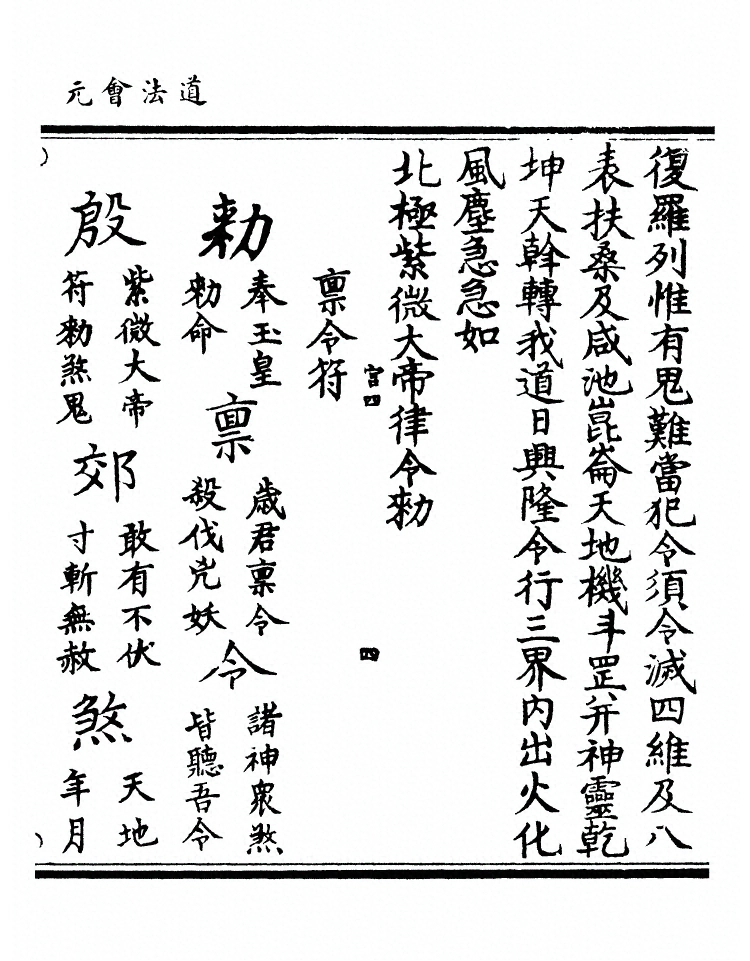 道法會元
復羅列惟有鬼難當犯令須令滅四維及八
表扶桑及咸池崑崙天地機斗罡并神靈乾
坤天斡轉我道日興隆令行三界内出火化
風塵急急如
北極紫微大帝律令勑
宫四
四
禀令符
勑
奉玉皇
勑命
禀
歳君禀令
殺伐兇妖
令
諸神衆煞
皆聽吾令
殷
紫微大帝
符勑煞鬼
郊
敢有不伏
寸斬無赦
煞
天地
年月